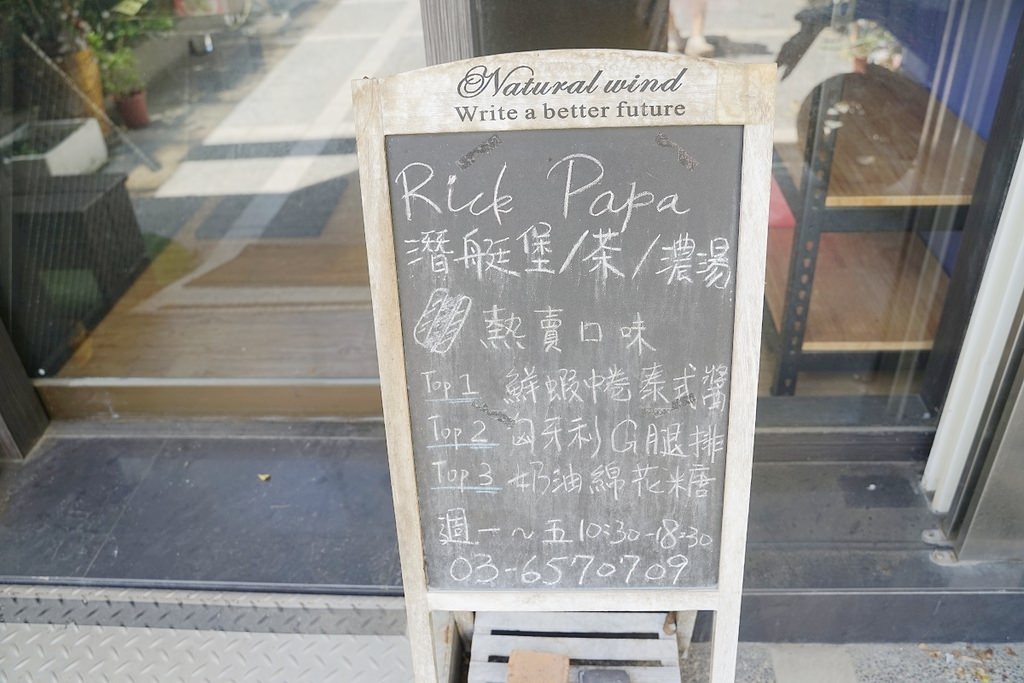 Natural wind
Write a better future
Rick Papa
潛艇堡/茶/濃湯
熱賣口味
Top 1 鮮蝦中卷泰式醬
Top 2 匈牙利G腿排
Top 3 奶油綿花糖
週一～五 10:30-18:30
03-6570709